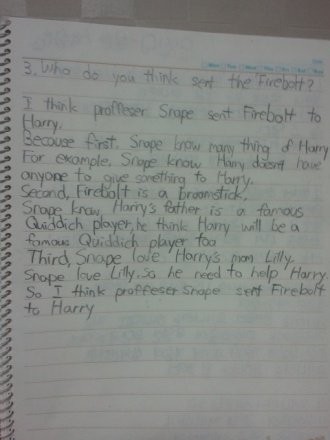 3. Who do you think sent the Firebolt?
I think proffeser Snape sent Firebolt to
Harry.
Because first, Snape know many thing of Harry
For example, Snape know Harry doesn't have
anyone to give something to Harry.
Second, Firebolt is a broomstick.
Snape know Harry's father is a famous
Quiddich player, he think Harry will be a
famous Quiddich player too
Third, Snape love Harry's mom Lilly.
Snape love Lilly. So he need to help Harry.
So I think proffeser Snape sent Firebolt
to Harry